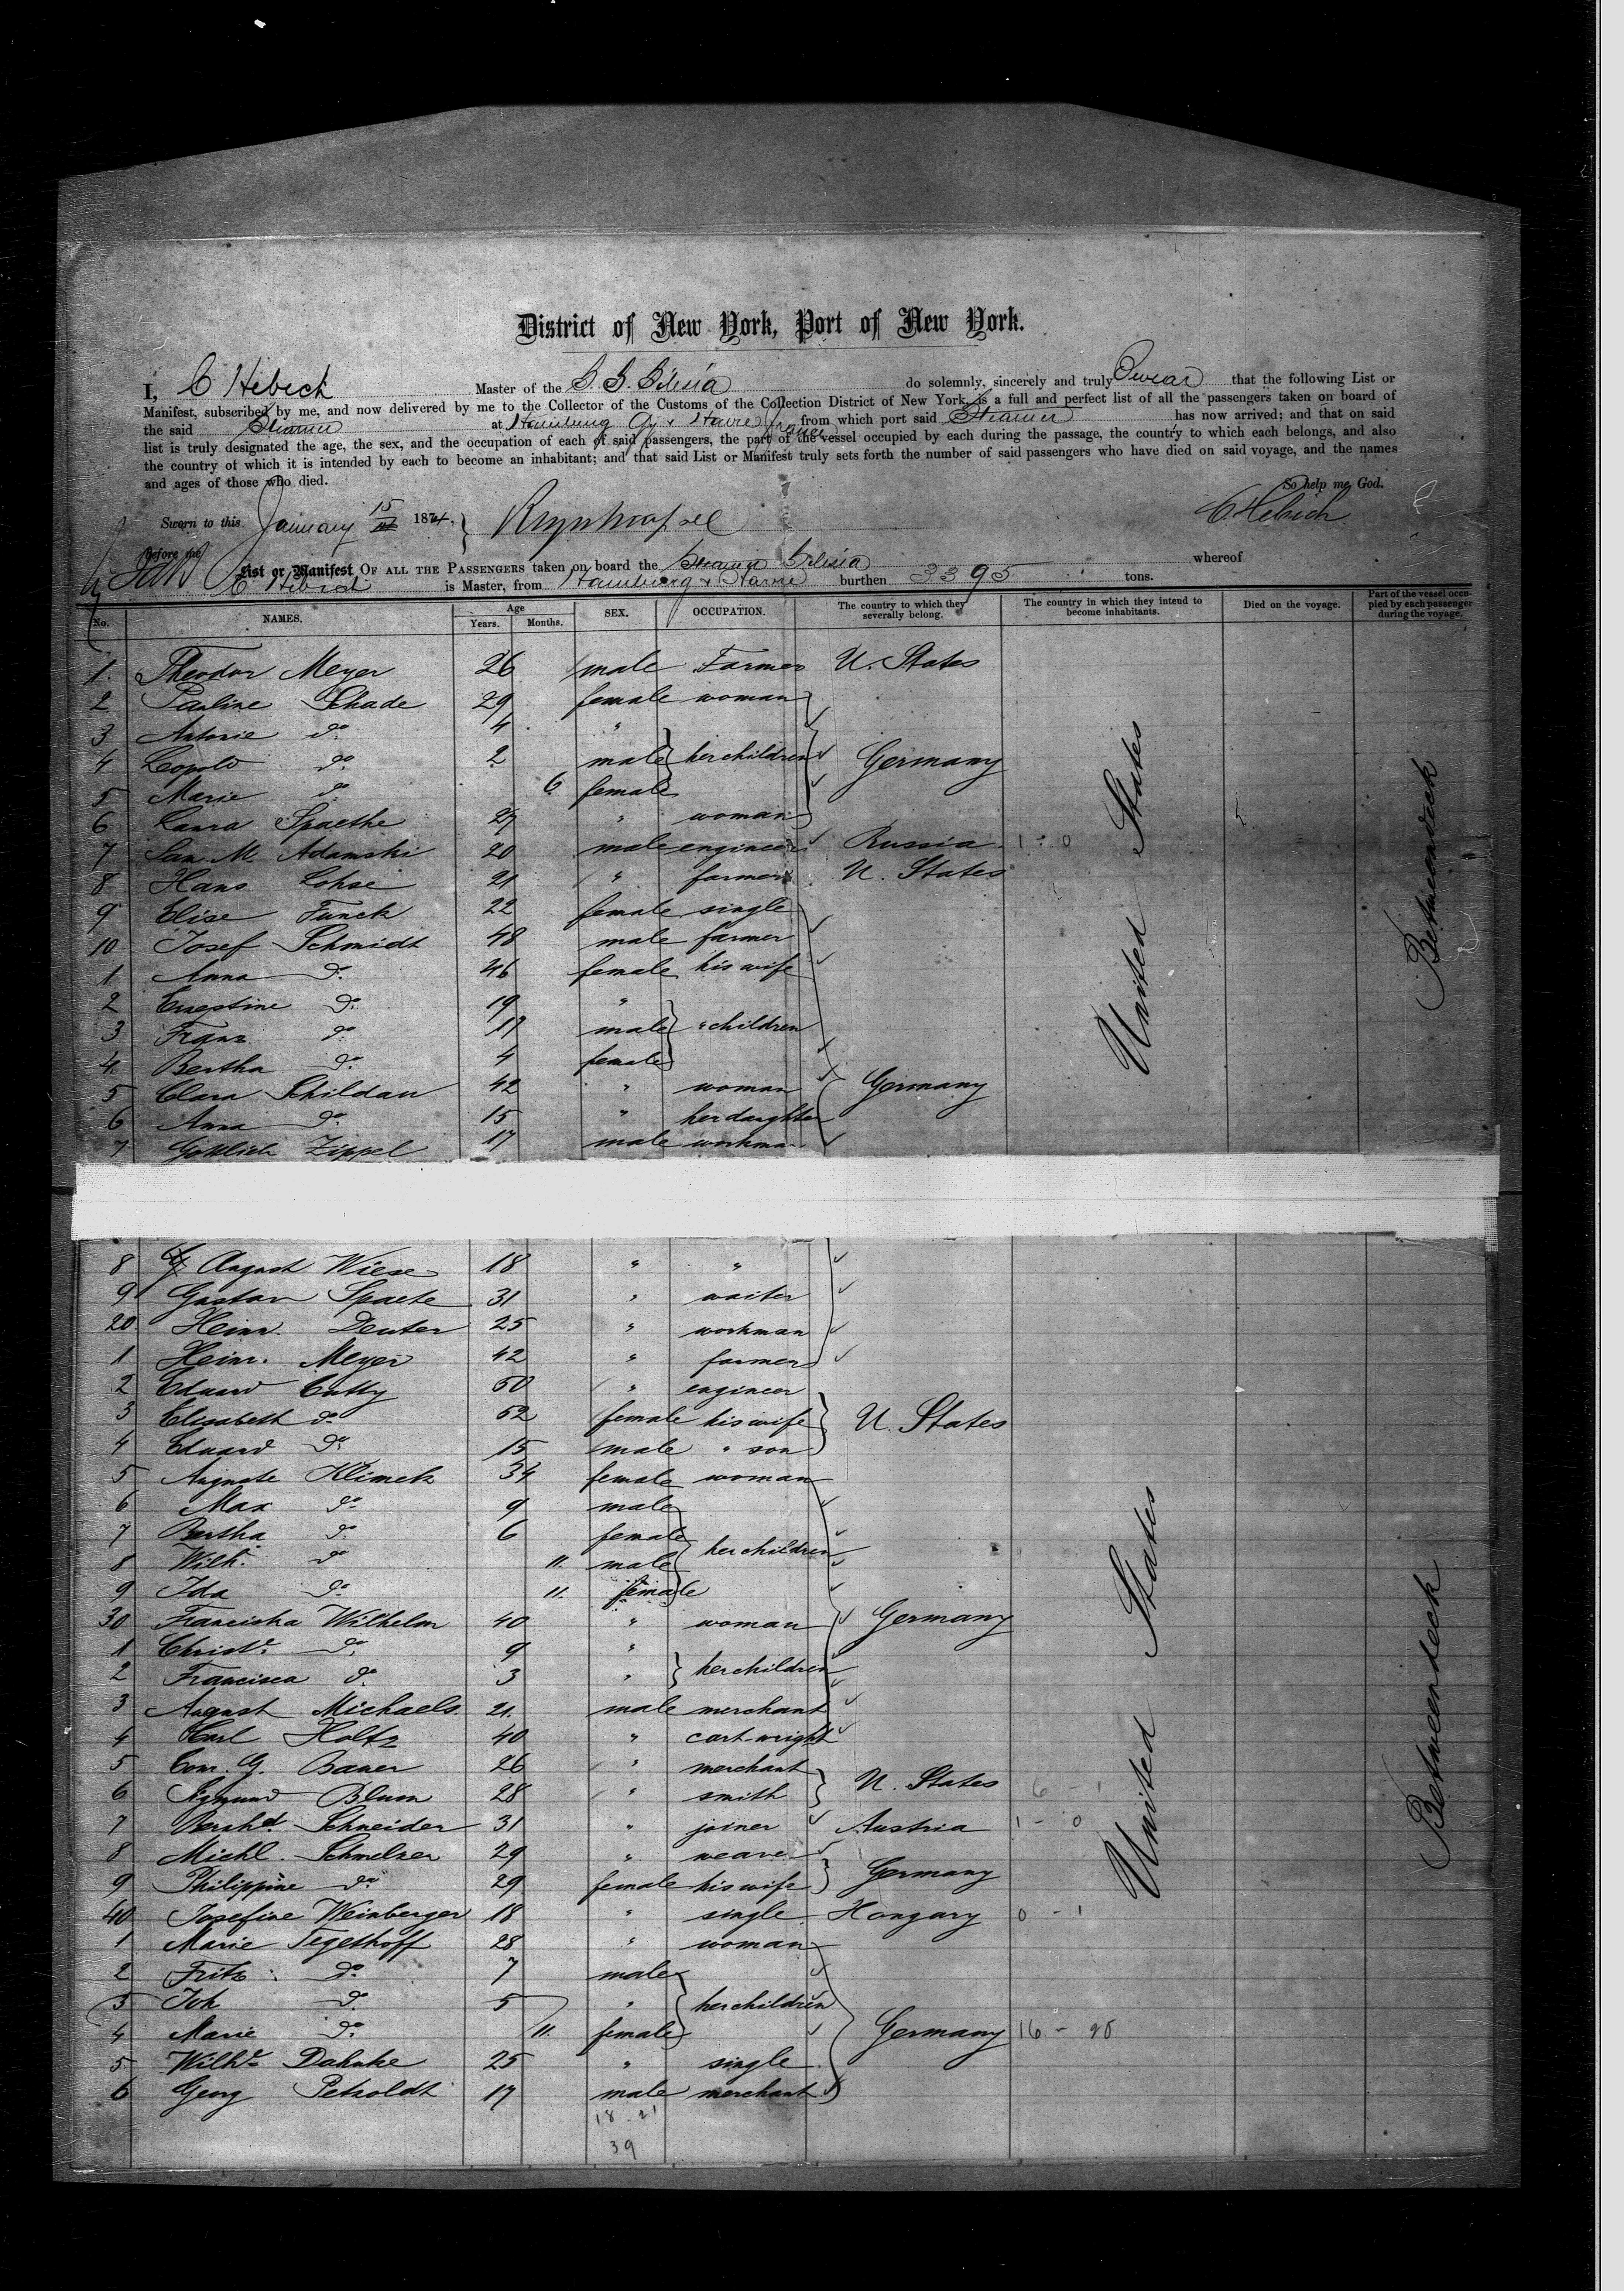 District of New York, Port of New York.
I, C Hebich Master of the S. S. Silesia do solemnly, sincerely and truly Swear that the following List or
Manifest, subscribed by me, and now delivered by me to the Collector of the Customs of the Collection District of New York, is a full and perfect list of all the passengers taken on board of
the said Steamer at Hamburg Gy & Havre France from which port said Steamer has now arrived; and that on said
list is truly designated the age, the sex, and the occupation of each of said passengers, the part of the vessel occupied by each during the passage, the country to which each belongs, and also
the country of which it is intended by each to become an inhabitant; and that said List or Manifest truly sets forth the number of said passengers who have died on said voyage, and the names
and ages of those who died. So help me God.
Sworn to this January 15 1874, C. Hebich
Before me
List or Manifest OF ALL THE PASSENGERS taken on board the Steamer Silesia whereof
C Hebich is Master, from Hamburg & Havre burthen 3395 tons.
No. NAMES. Age Years. Months. SEX. OCCUPATION. The country to which they severally belong. The country in which they intend to become inhabitants. Died on the voyage. Part of the vessel occupied by each passenger during the voyage.
1. Theodor Meyer 26 male Farmer U. States
2 Pauline Schade 29 female woman
3 Antonie do 4 "
4 Leopold do 2 male her children Germany
5 Marie do 6 female
6 Laura Spaethe 27 " woman
7 Jan. M. Adamski 20 male engineer Russia 1 - 0
8 Hans Lohse 21 " farmer U. States
9 Elise Funck 22 female single
10 Josef Schmidt 48 male farmer
1 Anna do 46 female his wife
2 Ernestine do 19 "
3 Franz do 17 male " children
4 Bertha do 4 female
5 Clara Schildau 42 " woman Germany
6 Anna do 15 " her daughter
7 Gottlieb Zippel 17 male workman
United States
Betweendeck
8 August Wiese 18 " "
9 Gustav Spaete 31 " waiter
20 Heinr. Deuter 25 " workman
1 Heinr. Meyer 42 " farmer
2 Eduard Cutty 50 " engineer
3 Elisabeth do 52 female his wife U. States
4 Eduard do 15 male " son
5 Auguste Klimek 34 female woman
6 Max do 9 male
7 Bertha do 6 female
8 Wilh. do 11. male her children
9 Ida do 11. female
30 Franciska Wilhelm 40 " woman Germany
1 Christe. do 9 "
2 Francisca do 3 " her children
3 August Michaels 21. male merchant
4 Carl Holtz 40 " cartwright
5 Conr. G. Bauer 26 " merchant
6 Sigmund Blum 28 " smith U. States 6 - 1
7 Bernhd. Schneider 31 " joiner Austria 1 - 0
8 Michl. Schmelzer 29 " weaver
9 Philippine do 29 female his wife Germany
40 Josefine Weinberger 18 " single Hongary 0 - 1
1 Marie Tegethoff 28 " woman
2 Fritz do 7 male
3 Joh do 5 " her children
4 Marie do 11. female Germany 16 - 20
5 Wilhe Dahnke 25 " single
6 Georg Petzoldt 17 male merchant
United States
Betweendeck
18 - 21
39